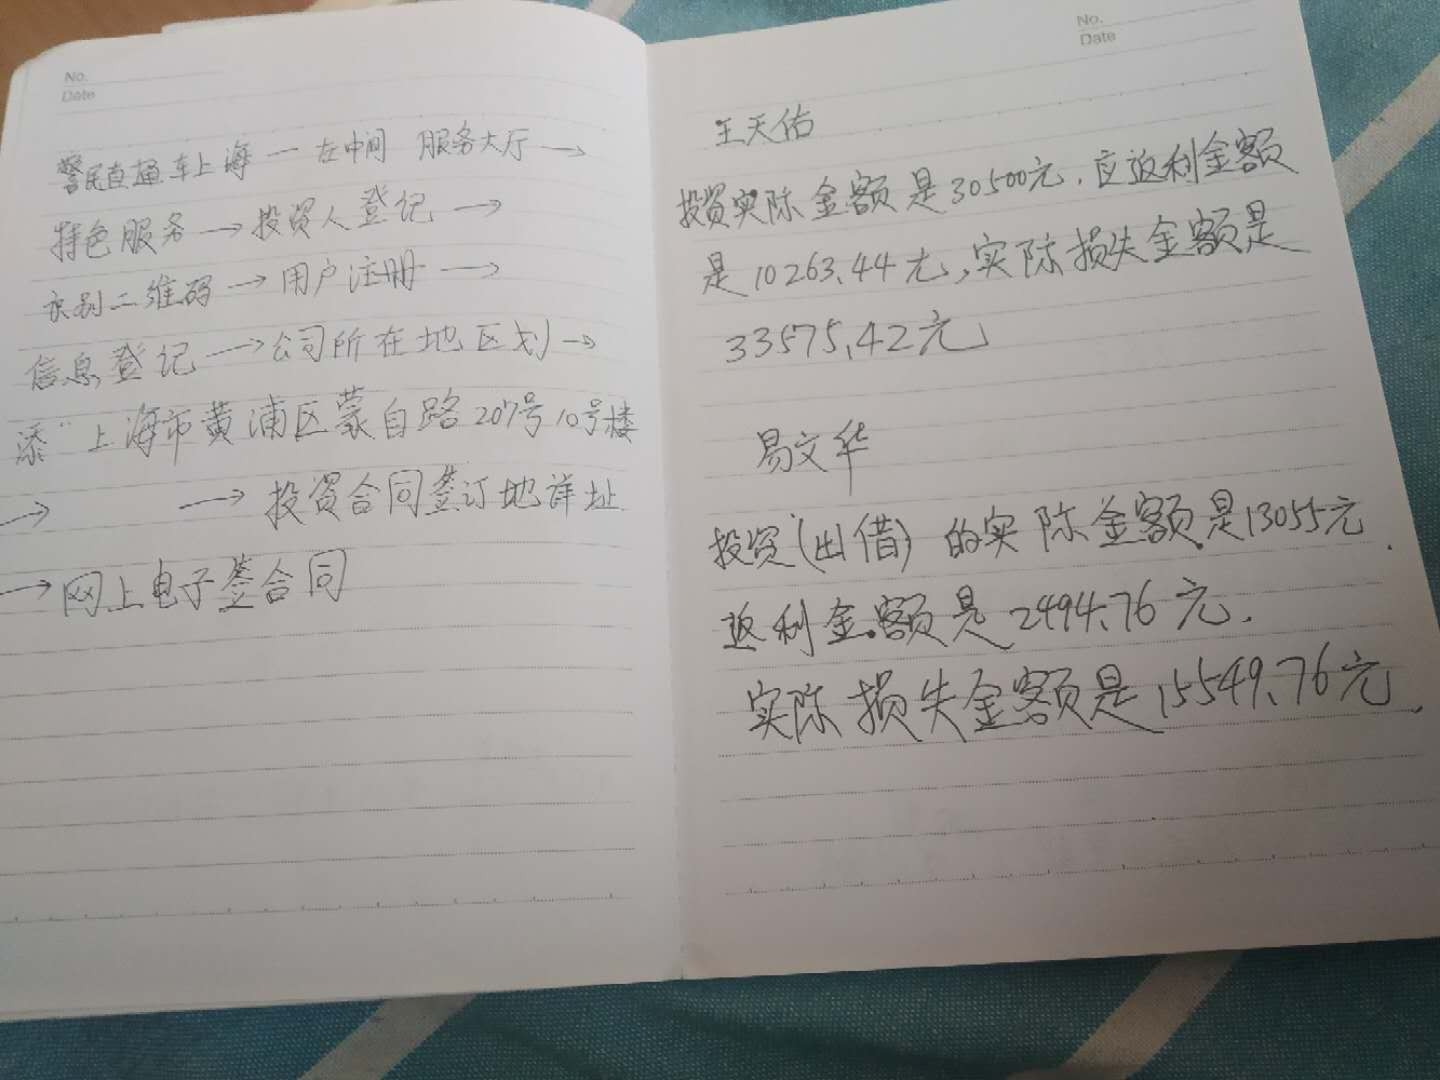 No.
Date
警民直通车上海 — 左中间 服务大厅 →
特色服务 → 投资人登记 →
识别二维码 → 用户注册 →
信息登记 → 公司所在地区划 →
添“上海市黄浦区蒙自路207号10号楼
→ → 投资合同签订地详址
→ 网上电子签合同
No.
Date
王天佑
投资实际金额是30500元,应返利金额
是10263.44元,实际损失金额是
33575.42元
易文华
投资(出借)的实际金额是13055元.
返利金额是2494.76元.
实际损失金额是15549.76元.